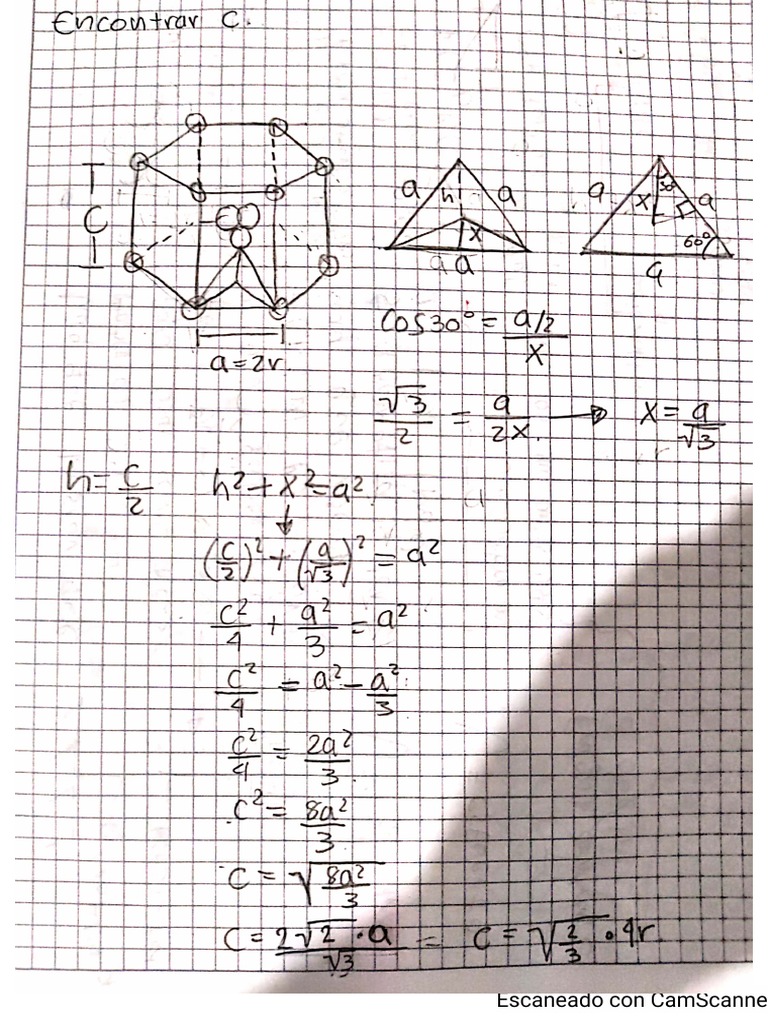 Encontrar c.
a h a x a
a x 30° a 60° a
C
a=2r
cos30° = a/2 / x
√3/2 = a/2x → x = a/√3
h = c/2 h² + x² = a²
(c/2)² + (a/√3)² = a²
c²/4 + a²/3 = a²
c²/4 = a² - a²/3
c²/4 = 2a²/3
c² = 8a²/3
c = √(8a²/3)
c = 2√2/√3 · a = c = √(2/3) · 4r
Escaneado con CamScanne